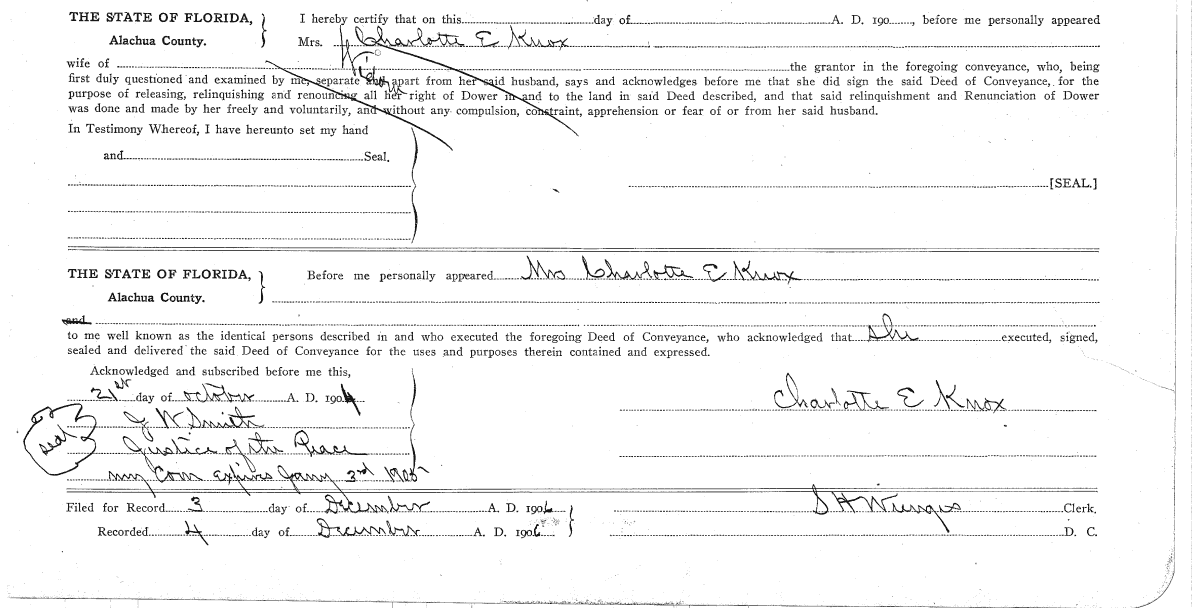 THE STATE OF FLORIDA, } I hereby certify that on this..........day of..........A. D. 190....., before me personally appeared
Alachua County. Mrs. Charlotte E Knox
wife of..........the grantor in the foregoing conveyance, who, being
first duly questioned and examined by me, separate and apart from her said husband, says and acknowledges before me that she did sign the said Deed of Conveyance, for the
purpose of releasing, relinquishing and renouncing all her right of Dower in and to the land in said Deed described, and that said relinquishment and Renunciation of Dower
was done and made by her freely and voluntarily, and without any compulsion, constraint, apprehension or fear of or from her said husband.
In Testimony Whereof, I have hereunto set my hand
and..........Seal.
[SEAL.]
THE STATE OF FLORIDA, } Before me personally appeared Mrs Charlotte E Knox
Alachua County.
and
to me well known as the identical persons described in and who executed the foregoing Deed of Conveyance, who acknowledged that she executed, signed,
sealed and delivered the said Deed of Conveyance for the uses and purposes therein contained and expressed.
Acknowledged and subscribed before me this,
21st day of October A. D. 1904
Charlotte E Knox
J W Smith
seal
Justice of the Peace
my Com expires Jany 3rd 1905
Filed for Record 3 day of December A. D. 1906 } S H Wienges Clerk.
Recorded 4 day of December A. D. 1906 D. C.